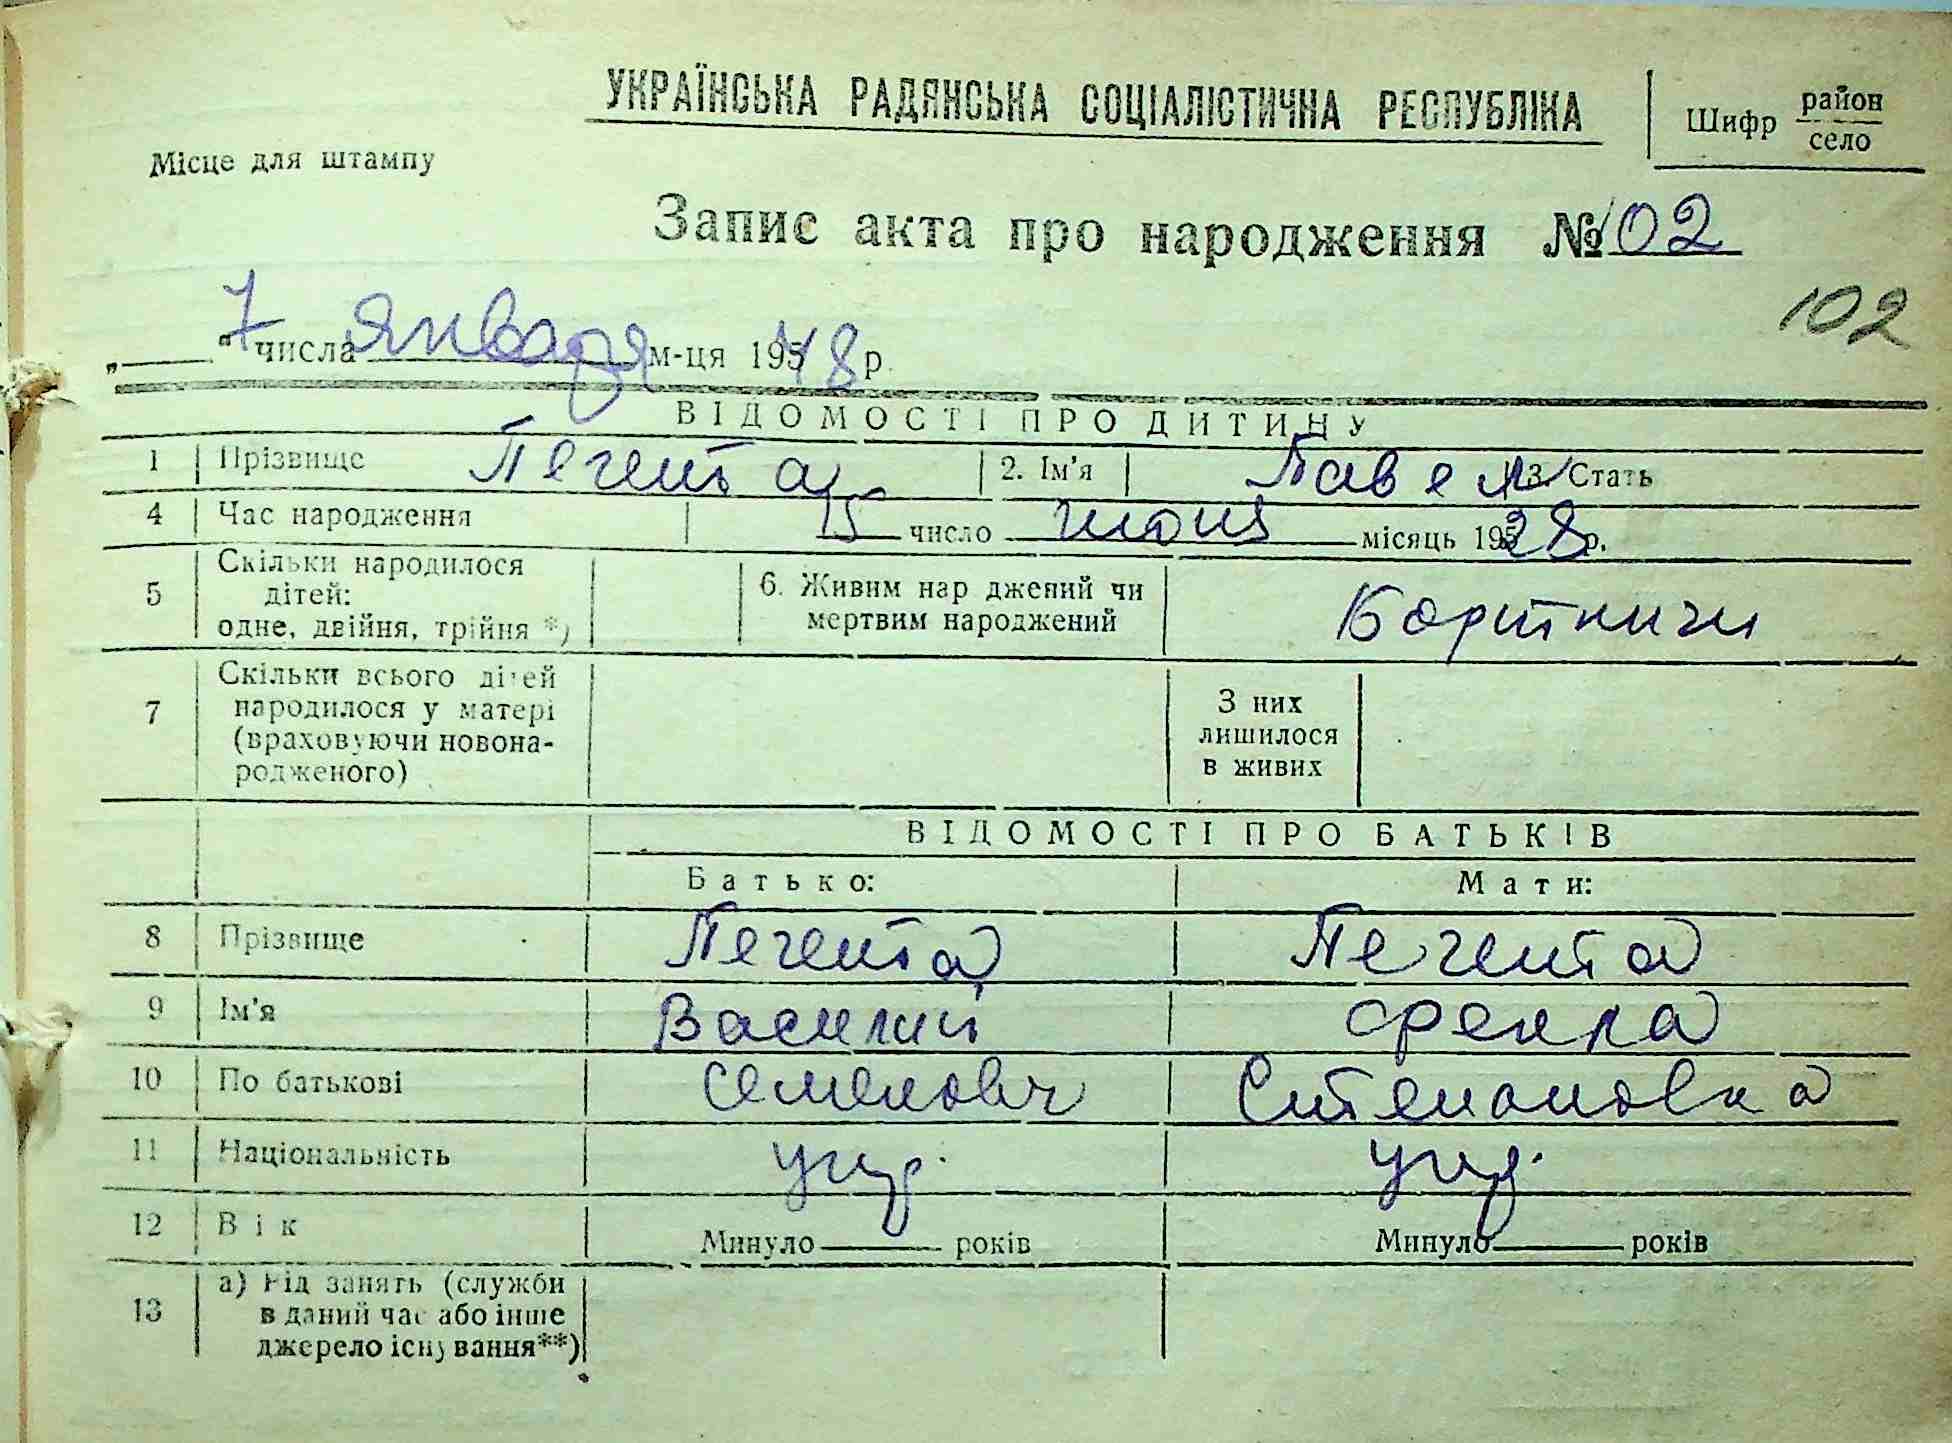 УКРАЇНСЬКА РАДЯНСЬКА СОЦІАЛІСТИЧНА РЕСПУБЛІКА
Шифр район село
Місце для штампу
Запис акта про народження № 102
102
„ " 7 числа января м-ця 1948 р.
ВІДОМОСТІ ПРО ДИТИНУ
1 Прізвище Пегента 2. Ім'я Павел 3. Стать
4 Час народження 15 число июня місяць 1928 р.
5 Скільки народилося дітей: одне, двійня, трійня *) 6. Живим нар джений чи мертвим народжений Бортничи
7 Скільки всього дітей народилося у матері (враховуючи новонародженого) З них лишилося в живих
ВІДОМОСТІ ПРО БАТЬКІВ
Батько: Мати:
8 Прізвище Пегента Пегента
9 Ім'я Василий Фекла
10 По батькові Семенович Степановна
11 Національність укр. укр.
12 Вік Минуло років Минуло років
13 а) Рід занять (служби в даний час або інше джерело існування**)